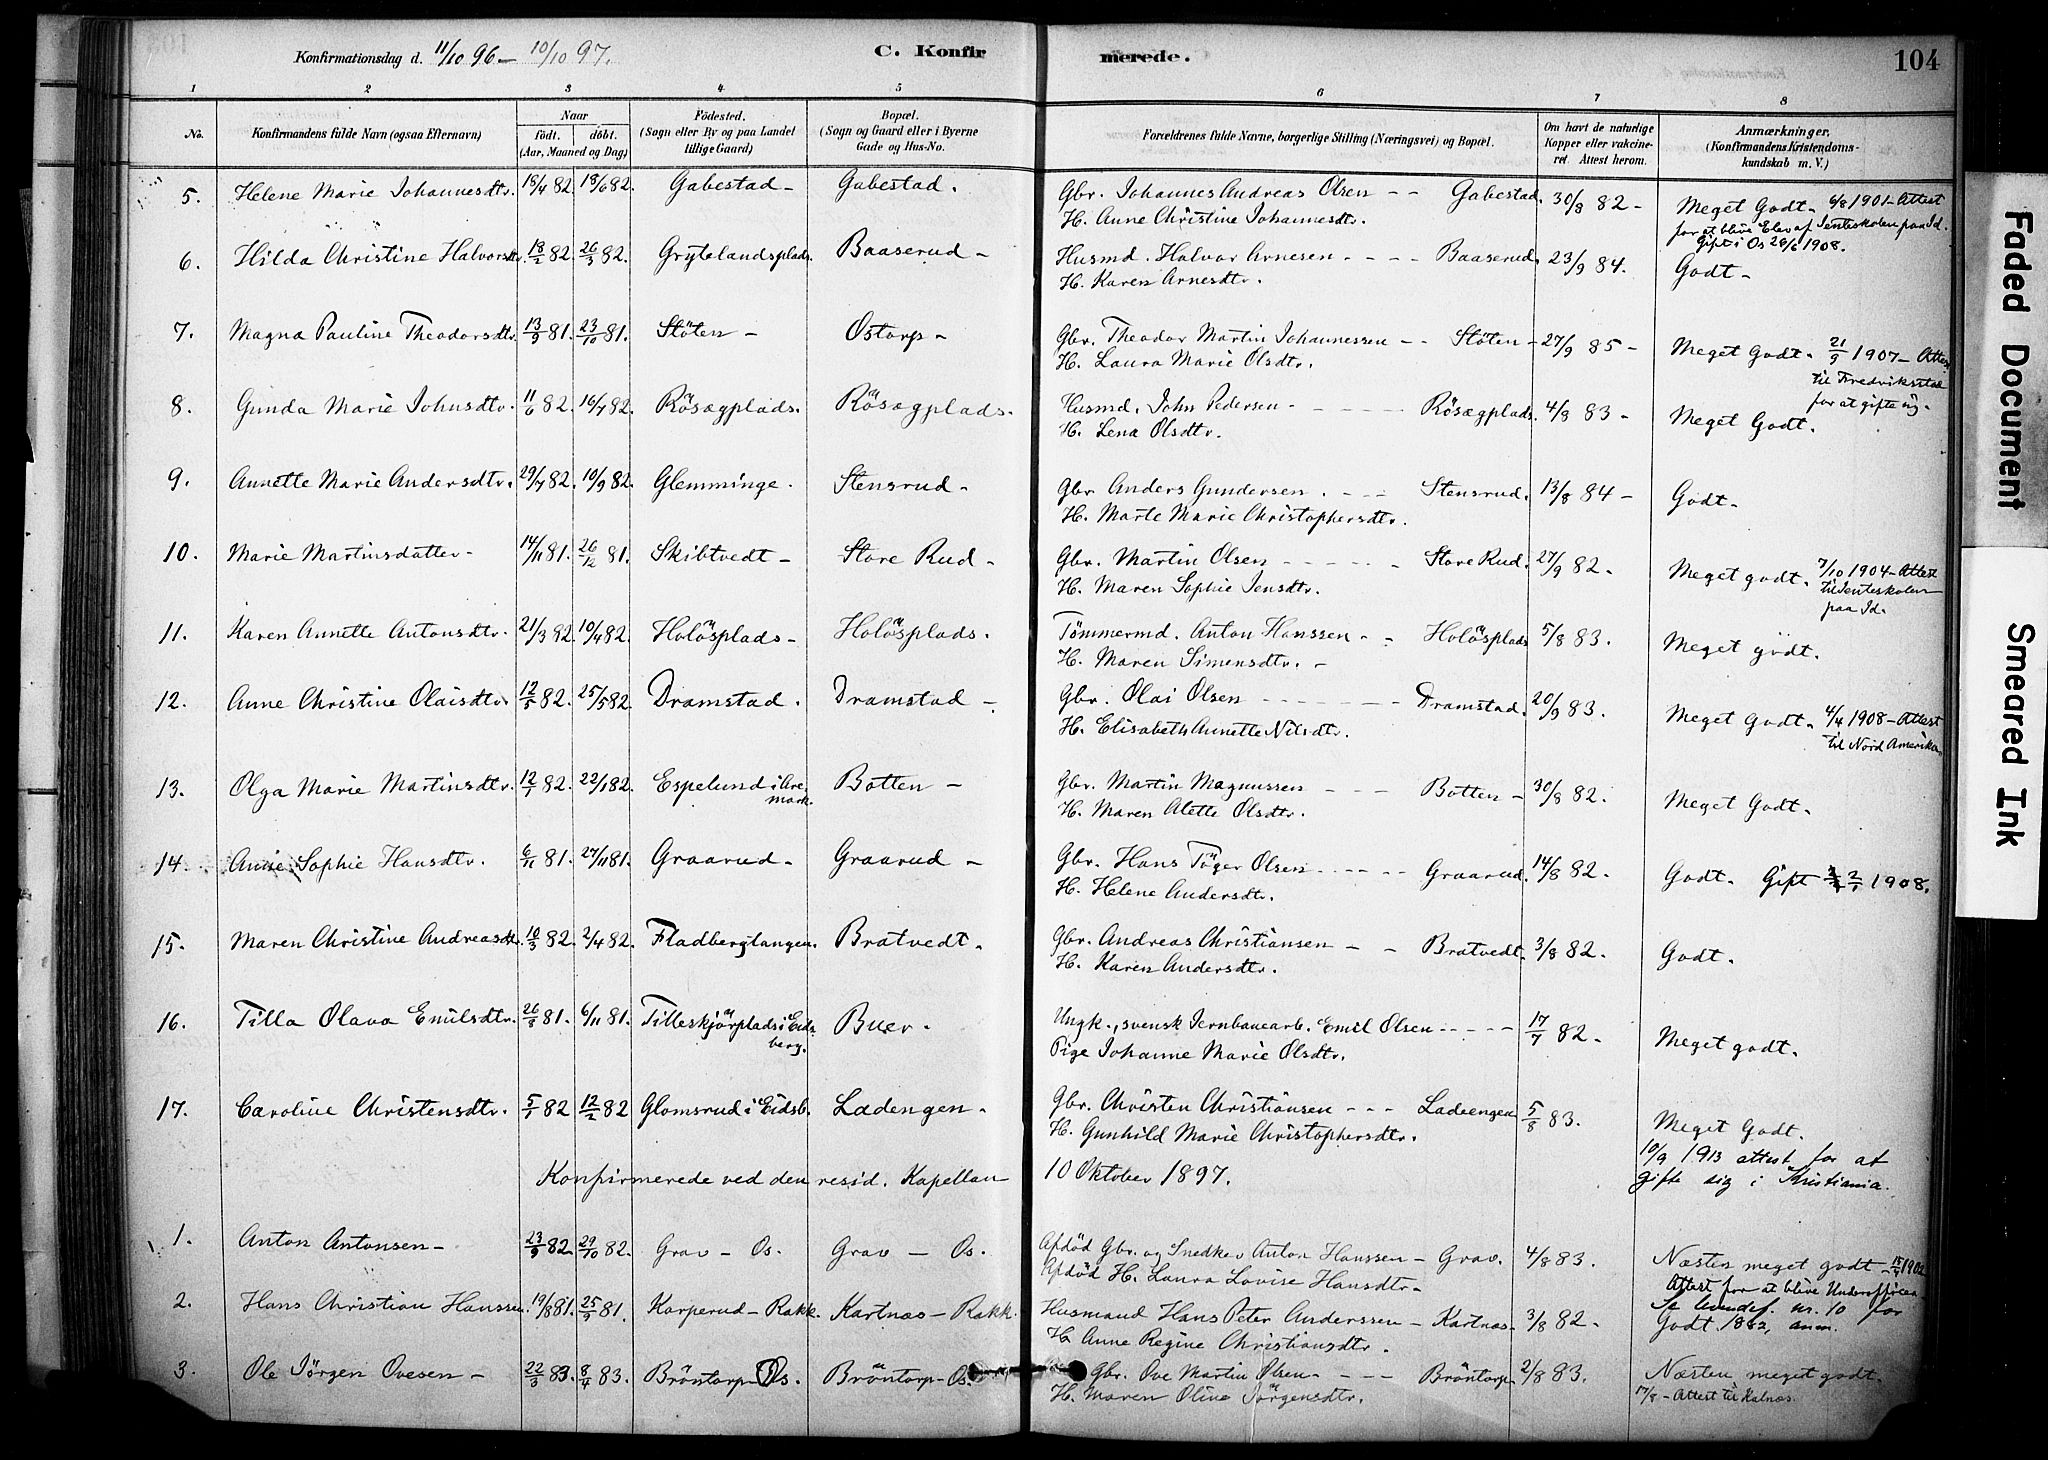 Konfirmationsdag d. 11/10 96 – 10/10 97. C. Konfirmerede. 104
1 2 3 4 5 6 7 8
No. Konfirmandens fulde Navn (ogsaa Efternavn) Naar født. døbt. (Aar, Maaned og Dag) Fødested. (Sogn eller By og paa Landet tillige Gaard) Bopæl. (Sogn og Gaard eller i Byerne Gade og Hus-No. Forældrenes fulde Navne, borgerlige Stilling (Næringsvei) og Bopæl. Om havt de naturlige Kopper eller vakcineret. Attest herom. Anmærkninger. (Konfirmandens Kristendomskundskab m. V.)
5. Helene Marie Johannesdtr. 18/4 82. 18/6 82. Gabestad – Gabestad. Gbr. Johannes Andreas Olsen – – Gabestad. 30/8 82 – Meget Godt. 6/8 1901 – Attest
H. Anne Christine Johannesdtr. for at blive Elev af Jenteskolen paa Id.
Gift i Os 26/6 1908.
6. Hilda Christine Halvorsdtr. 18/2 82. 26/3 82. Grytelandsplads. Baaserud – Husmd. Halvor Arnesen – – – – Baaserud. 23/9 84. Godt –
H. Karen Arnesdtr.
7. Magna Pauline Theodorsdtr. 13/9 81. 23/10 81. Stöten – Ostorp – Gbr. Theodor Martin Johannessen – – Stöten – 27/9 85 – Meget Godt. 21/9 1907 – Attest
H. Laura Marie Olsdtr. til Fredriksstad
for at gifte sig.
8. Gunda Marie Johnsdtr. 11/6 82. 16/7 82. Rösægplads. Rösægplads. Husmd. John Pedersen – – – – – Rösægplads. 4/8 83 – Meget Godt.
H. Lena Olsdtr.
9. Annette Marie Andersdtr. 29/7 82. 10/9 82. Glemminge. Stensrud – Gbr. Anders Gundersen. – – – Stensrud. 13/8 84 – Godt.
H. Marte Marie Christophersdtr.
10. Marie Martinsdatter – 14/11 81. 26/12 81. Skibtvedt – Store Rud – Gbr. Martin Olsen – – – – – Store Rud. 27/9 82. Meget godt. 7/10 1904 – Attest
H. Maren Sophie Jensdtr. til Jenteskolen
paa Id.
11. Karen Annette Antonsdtr. 21/3 82. 10/4 82. Holösplads – Holösplads. Tömmermd. Anton Hanssen – – Holösplads 5/8 83. Meget godt.
H. Maren Simensdtr. –
12. Anne Christine Olaisdtr. 12/5 82. 25/5 82 Dramstad. Dramstad – Gbr. Olai Olsen – – – – – – Dramstad. 20/9 83. Meget Godt. 4/4 1908 – Attest
H. Elisabeth Annette Nilsdtr. til Nord Amerika.
13. Olga Marie Martinsdtr. 12/1 82. 22/1 82. Espelund i Aremark. Botten – Gbr. Martin Magnussen – – – Botten – 30/8 82. Meget Godt.
H. Maren Alette Olsdtr.
14. Anne Sophie Hansdtr. 6/11 81. 27/11 81. Graarud – Graarud – Gbr. Hans Töger Olsen – – – – Graarud. 14/8 82. Godt. Gift 2/1 1908.
H. Helene Andersdtr.
15. Maren Christine Andreasdtr. 10/3 82. 2/4 82. Fladbergtangen. Bratvedt. Gbr. Andreas Christiansen – – Bratvedt. 3/8 82. Godt.
H. Karen Andersdtr.
16. Tilla Olava Emilsdtr. 26/8 81. 6/11 81. Tilleskjörplads i Eidsberg. Buer. Ungk., svensk Jernbanearb. Emil Olsen – – – – – 17/7 82. Meget godt.
Pige Johanne Marie Olsdtr.
17. Caroline Christensdtr. 5/1 82 12/2 82 Glomsrud i Eidsb. Ladengen. Gbr. Christen Christiansen – – – Ladeengen 5/8 83. Meget Godt.
H. Gunhild Marie Christophersdtr. 10/9 1913 attest for at
gifte sig i Kristiania.
Konfirmerede ved den resid. Kapellan 10 Oktober 1897.
1. Anton Antonsen – 23/9 82. 29/10 82. Grav – Os. Grav – Os. Afdöd Gbr. og Snedker Anton Hanssen – Grav. 4/8 83. Næsten meget godt
Afdöd H. Laura Lovise Hansdtr. Attest for at blive Underofficer.
2. Hans Christian Hanssen. 19/8 81. 25/9 81. Karperud – Rakk. Kartnas – Rakk. Husmand Hans Peter Anderssen – Kartnas – 3/8 82. Godt. nr. 10 for 1882, anm.
H. Anne Regine Christiansdtr.
3. Ole Jörgen Ovesen – 22/3 83. 8/4 83. Bröntorp – Os. Bröntorp – Os. Gbr. Ove Martin Olsen – – – Bröntorp – 2/8 83. Næsten meget godt.
H. Maren Oline Jörgensdtr. 17/8 – Attest til Kalnæs.
Faded Document
Smeared Ink